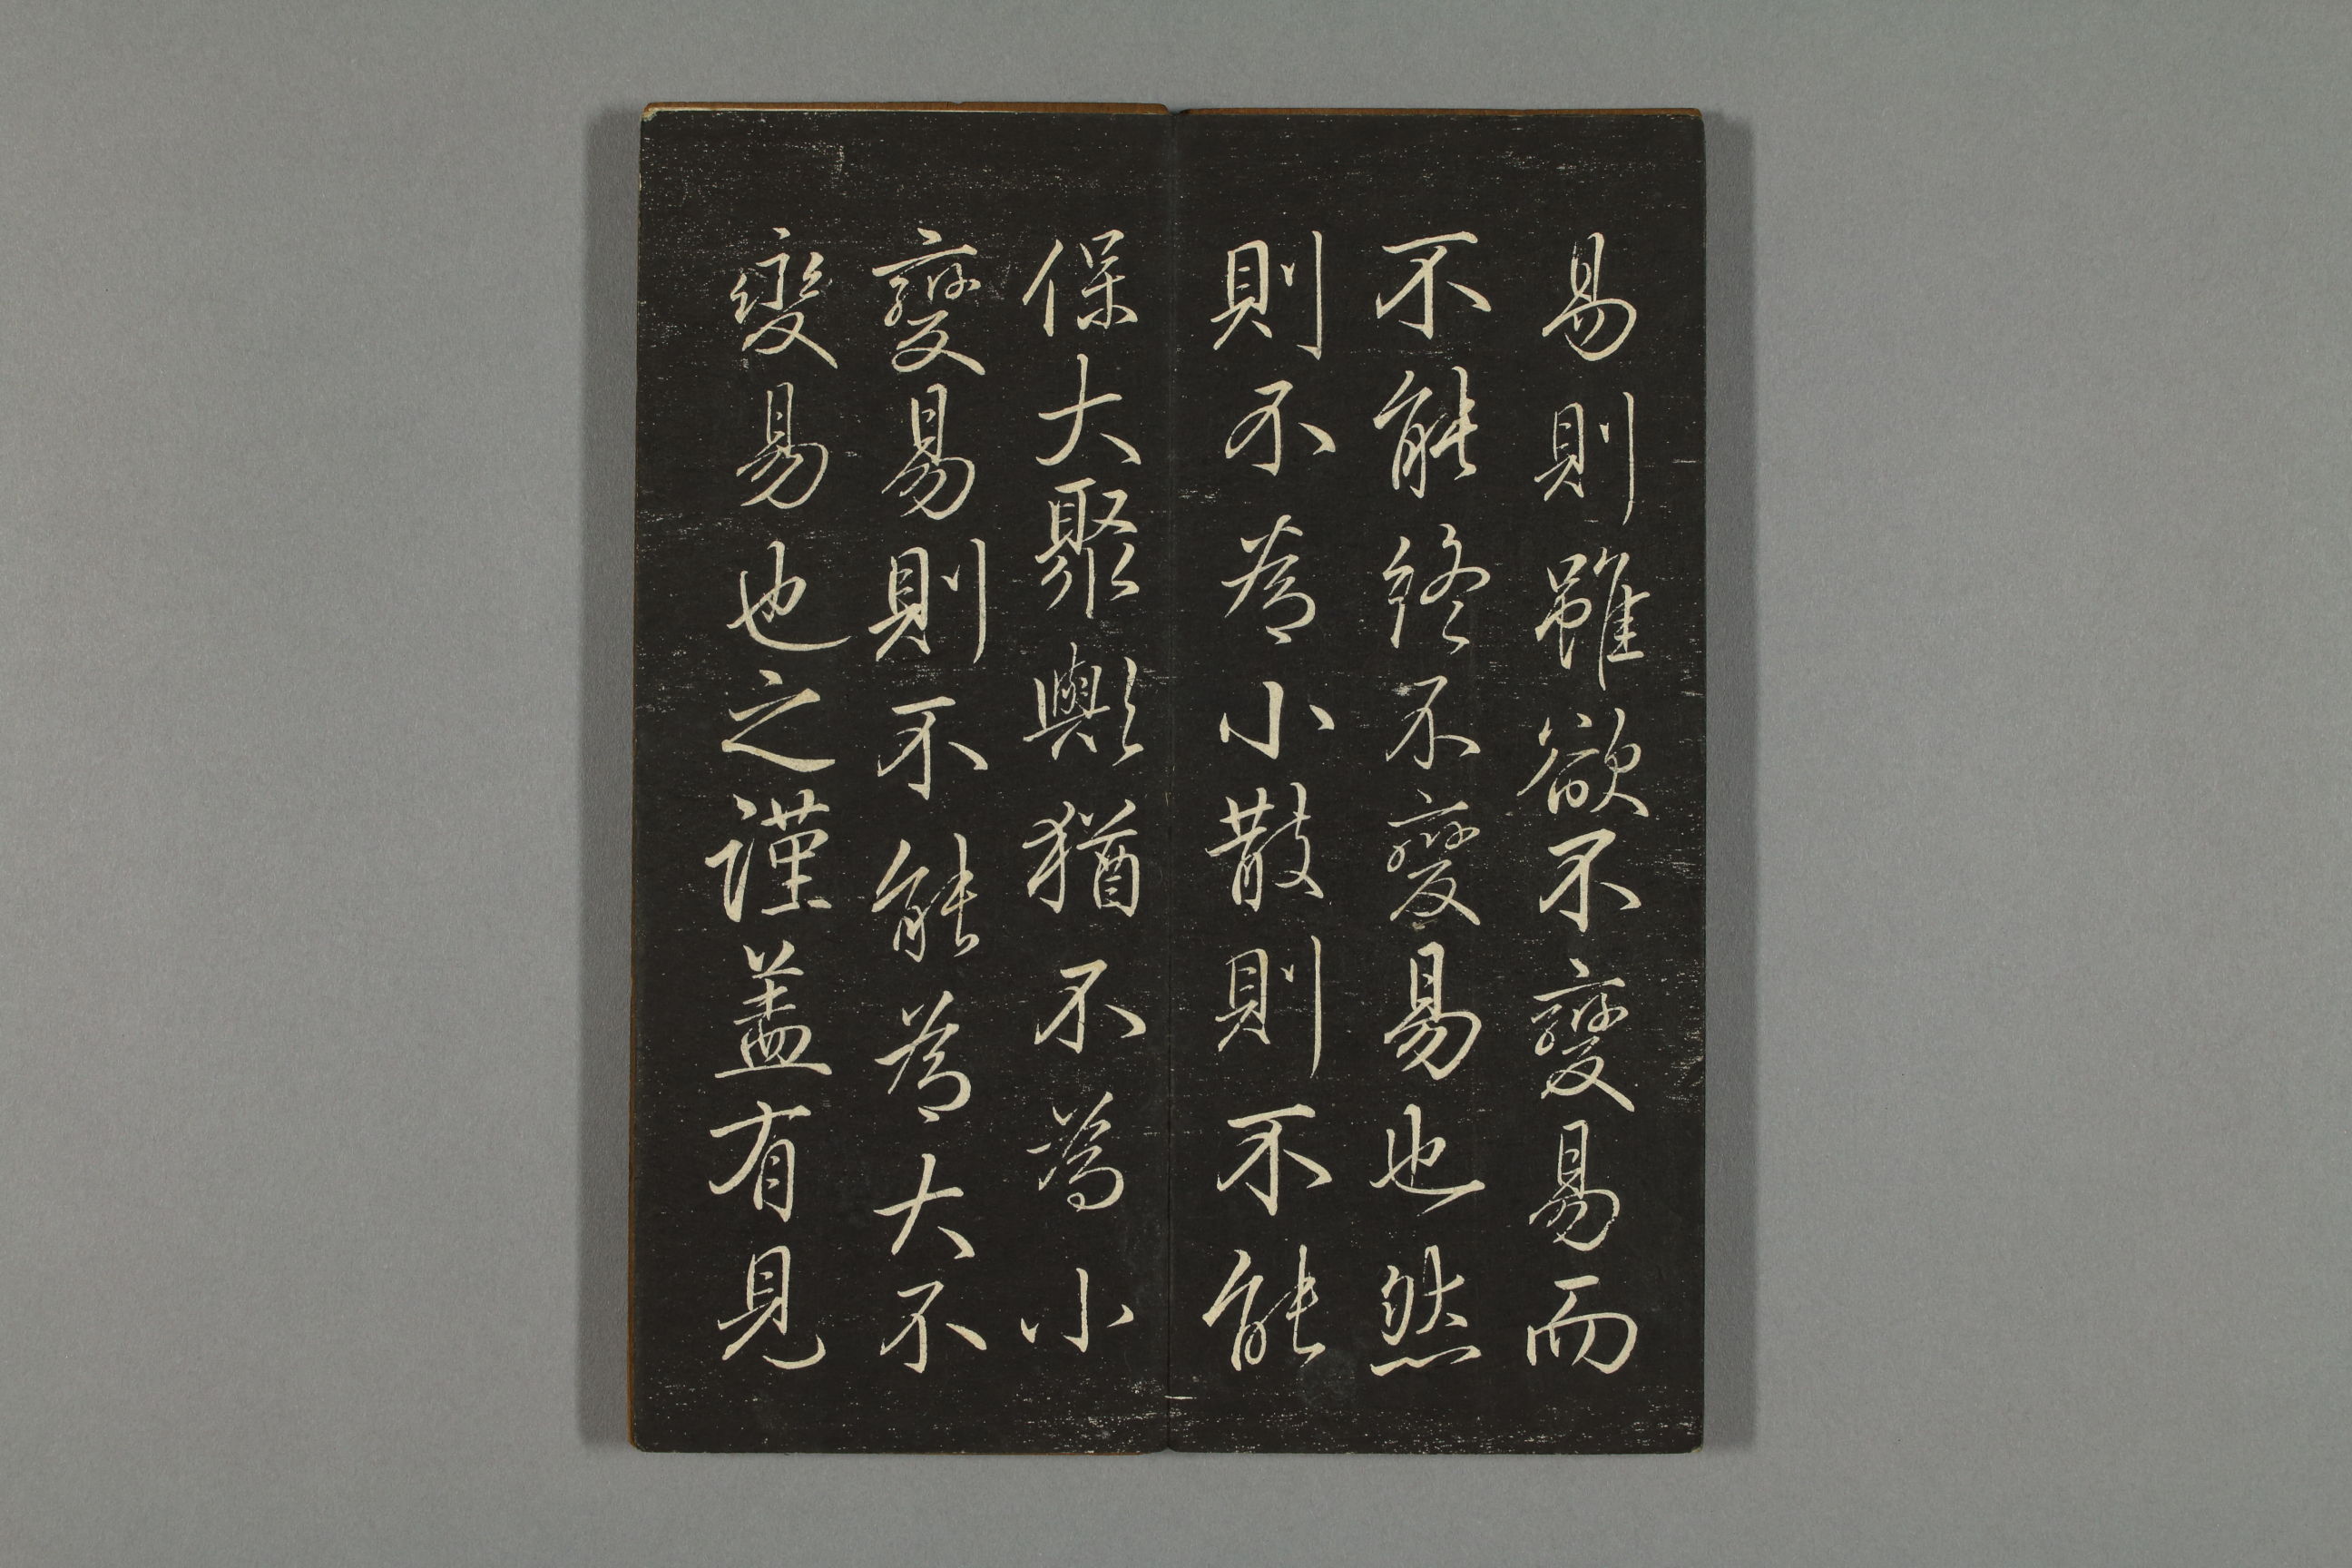 易則雖欲不變易而
不能終不變易也然
則不為小散則不能
保大聚歟猶不為小
變易則不能為大不
變易也之謹葢有見